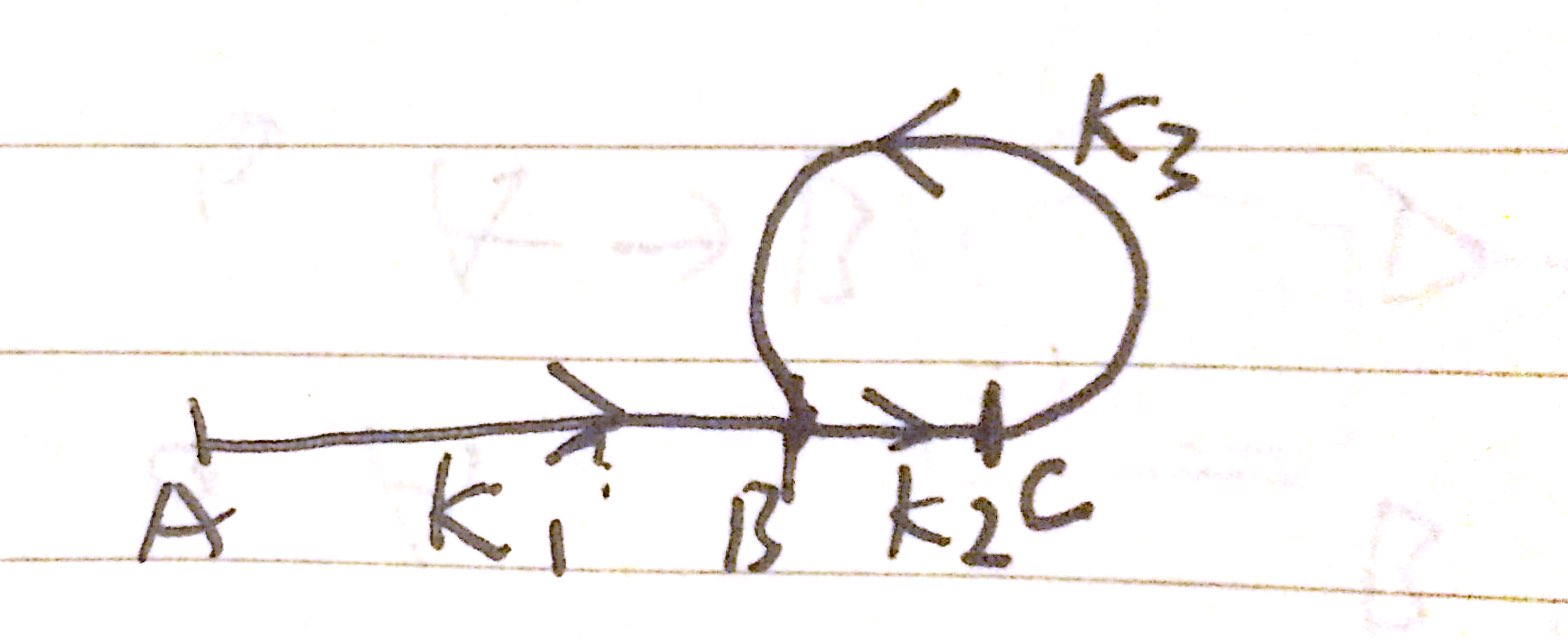 K3
A K1 B K2 C